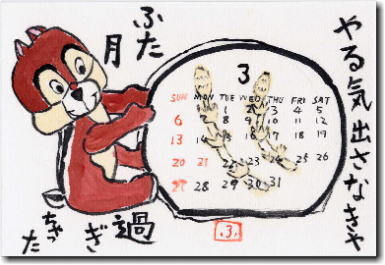 やる気出さなきゃ
ふた
月
過
ぎ
ちゃっ
た
3
SUN MON TUE WED THU FRI SAT
1 2 3 4 5
6 7 8 9 10 11 12
13 14 15 16 17 18 19
20 21 22 23 24 25 26
27 28 29 30 31
.3.